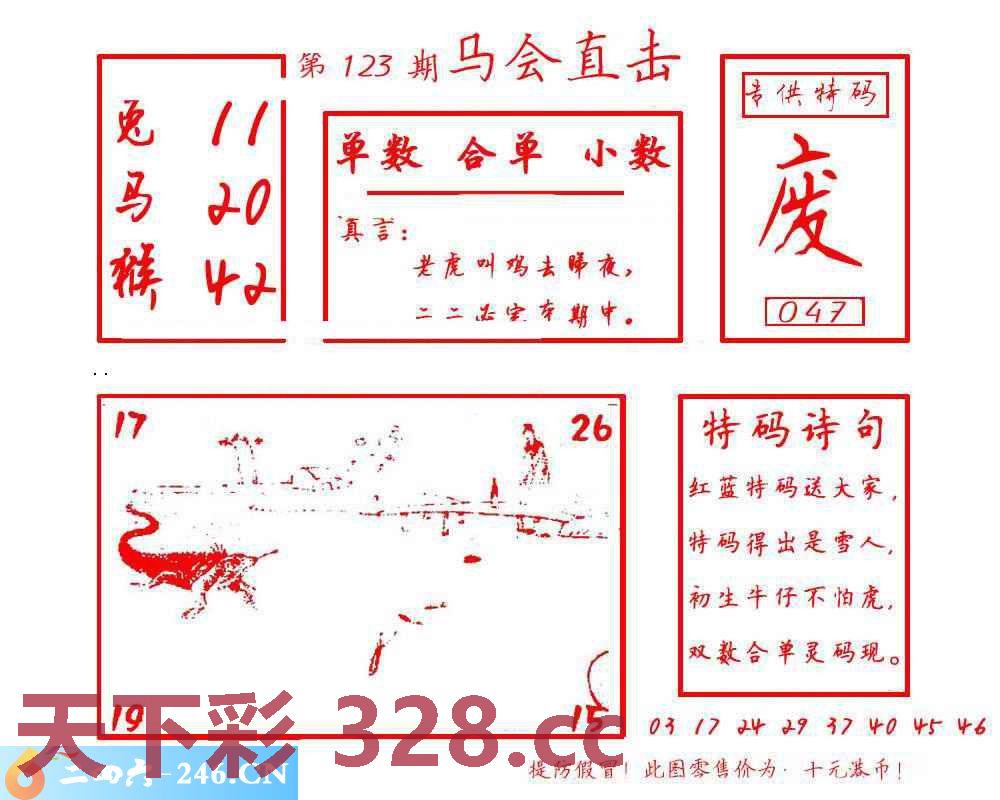 第 123 期 马会直击
兔 11
马 20
猴 42
单数 合单 小数
真言：
老虎叫鸡去睇夜，
二二必定本期中。
专供特码
废
047
17
26
19
15
特码诗句
红蓝特码送大家，
特码得出是雪人，
初生牛仔不怕虎，
双数合单灵码现。
03 17 24 29 37 40 45 46
提防假冒！此图零售价为·十元港币！
天下彩 328.cc
二四六-246.CN